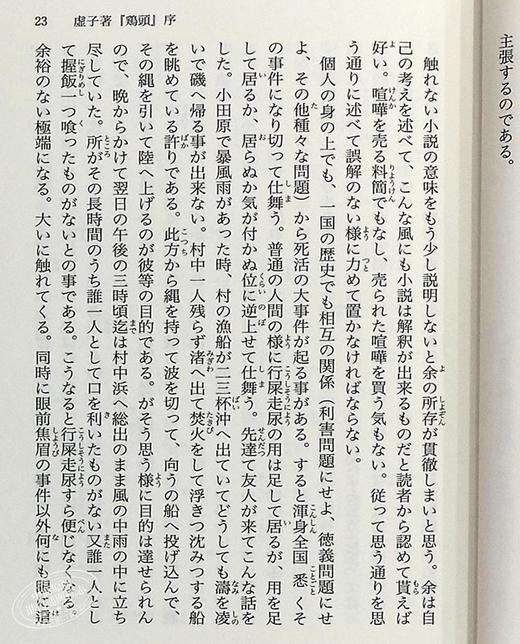 主張するのである。
23 虚子著『鶏頭』序
触れない小説の意味をもう少し説明しないと余の所存が貫徹しまいと思う。余は自
己の考えを述べて、こんな風にも小説は解釈が出来るものだと読者から認めて貰えば
好い。喧嘩を売る料簡でもなし、売られた喧嘩を買う気もない。従って思う通りを思
う通りに述べて誤解のない様に力めて置かなければならない。
個人の身の上でも、一国の歴史でも相互の関係（利害問題にせよ、徳義問題にせ
よ、その他種々な問題）から死活の大事件が起る事がある。すると渾身全国悉くそ
の事件になり切って仕舞う。普通の人間の様に行屎走尿の用は足して居るが、用を足
して居るか、居らぬか気が付かぬ位に逆上せて仕舞う。先達て友人が来てこんな話を
した。小田原で暴風雨があった時、村の漁船が二三杯沖へ出ていてどうしても濤を凌
いで磯へ帰る事が出来ない。村中一人残らず渚へ出て焚火をして浮きつ沈みつする船
を眺めている許りである。此方から縄を持って波を切って、向うの船へ投げ込んで、
その縄を引いて陸へ上げるのが彼等の目的である。がそう思う様に目的は達せられん
ので、晩からかけて翌日の午後の三時頃迄は村中浜へ総出のまま風の中雨の中に立ち
尽していた。所がその長時間のうち誰一人として口を利いたものがない又誰一人とし
て握飯一つ喰ったものがないとの事である。こうなると行屎走尿すら便じなくなる。
余裕のない極端になる。大いに触れてくる。同時に眼前焦眉の事件以外何にも眼に這